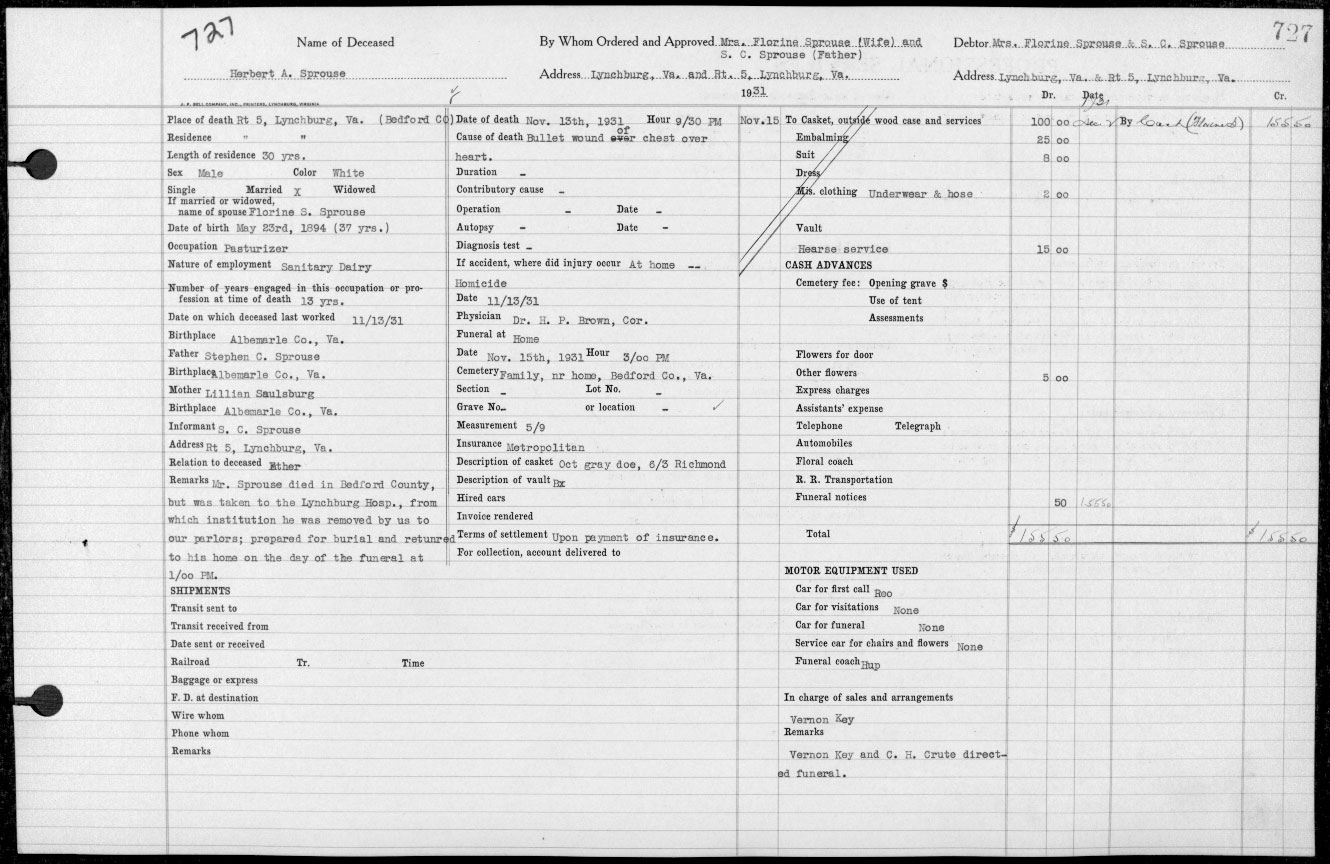 727
727
Name of Deceased
Herbert A. Sprouse
By Whom Ordered and Approved Mrs. Florine Sprouse (Wife) and
S. C. Sprouse (Father)
Address Lynchburg, Va. and Rt. 5, Lynchburg, Va.
Debtor Mrs. Florine Sprouse & S. C. Sprouse
Address Lynchburg, Va. & Rt 5, Lynchburg, Va.
J. P. BELL COMPANY, INC., PRINTERS, LYNCHBURG, VIRGINIA
1931
Dr. Date Cr.
Place of death Rt 5, Lynchburg, Va. (Bedford CO)
Residence " "
Length of residence 30 yrs.
Sex Male Color White
Single Married X Widowed
If married or widowed,
name of spouse Florine S. Sprouse
Date of birth May 23rd, 1894 (37 yrs.)
Occupation Pasturizer
Nature of employment Sanitary Dairy
Number of years engaged in this occupation or pro-
fession at time of death 13 yrs.
Date on which deceased last worked 11/13/31
Birthplace Albemarle Co., Va.
Father Stephen C. Sprouse
Birthplace Albemarle Co., Va.
Mother Lillian Saulsburg
Birthplace Albemarle Co., Va.
Informant S. C. Sprouse
Address Rt 5, Lynchburg, Va.
Relation to deceased Father
Remarks Mr. Sprouse died in Bedford County,
but was taken to the Lynchburg Hosp., from
which institution he was removed by us to
our parlors; prepared for burial and retunred
to his home on the day of the funeral at
1/oo PM.
SHIPMENTS
Transit sent to
Transit received from
Date sent or received
Railroad Tr. Time
Baggage or express
F. D. at destination
Wire whom
Phone whom
Remarks
Date of death Nov. 13th, 1931 Hour 9/30 PM
Cause of death Bullet wound of over chest over
heart.
Duration -
Contributory cause -
Operation - Date -
Autopsy - Date -
Diagnosis test -
If accident, where did injury occur At home --
Homicide
Date 11/13/31
Physician Dr. H. P. Brown, Cor.
Funeral at Home
Date Nov. 15th, 1931 Hour 3/oo PM
Cemetery Family, nr home, Bedford Co., Va.
Section - Lot No. -
Grave No. - or location - ✓
Measurement 5/9
Insurance Metropolitan
Description of casket Oct gray doe, 6/3 Richmond
Description of vault Bx
Hired cars
Invoice rendered
Terms of settlement Upon payment of insurance.
For collection, account delivered to
Nov.15 To Casket, outside wood case and services 100 00 Dec 2 1931 By Cash (Florine S) 155 50
Embalming 25 00
Suit 8 00
Dress
Mis. clothing Underwear & hose 2 00
Vault
Hearse service 15 00
CASH ADVANCES
Cemetery fee: Opening grave $
Use of tent
Assessments
Flowers for door
Other flowers 5 00
Express charges
Assistants' expense
Telephone Telegraph
Automobiles
Floral coach
R. R. Transportation
Funeral notices 50 155 50
Total $155 50 $155 50
MOTOR EQUIPMENT USED
Car for first call Reo
Car for visitations None
Car for funeral None
Service car for chairs and flowers None
Funeral coach Hup
In charge of sales and arrangements
Vernon Key
Remarks
Vernon Key and C. H. Crute direct-
ed funeral.